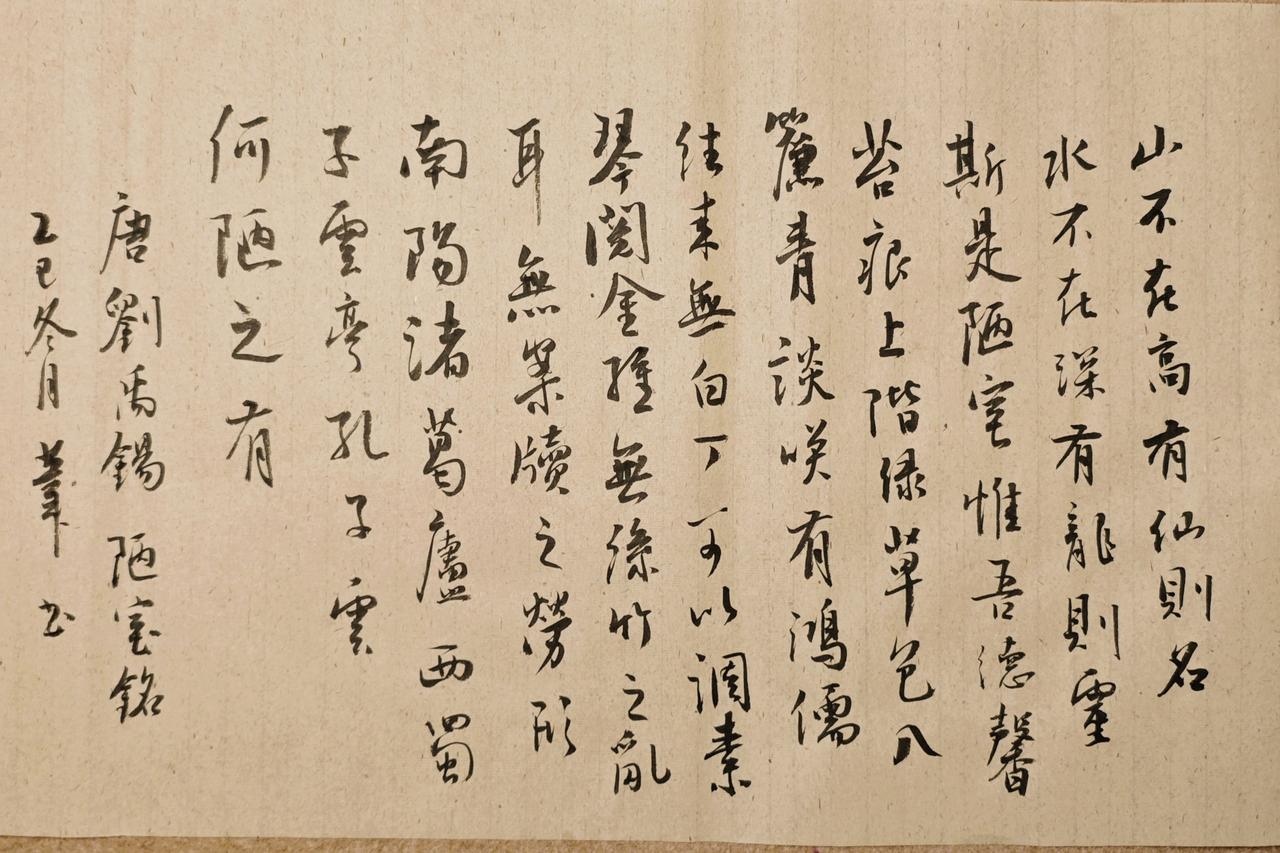 山不在高有仙則名
水不在深有龍則靈
斯是陋室惟吾德馨
苔痕上階緑草色入
簾青談咲有鴻儒
往来無白丁可以調素
琴閱金經無絲竹之亂
耳無案牘之勞形
南陽諸葛廬西蜀
子雲亭孔子雲
何陋之有
唐劉禹錫陋室銘
乙巳冬月 書